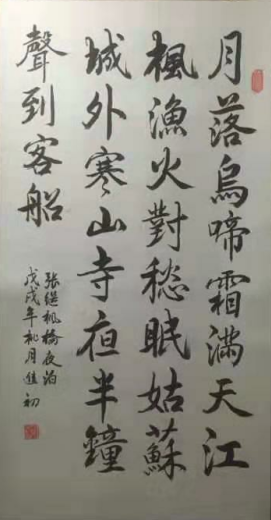 月落烏啼霜滿天江
楓漁火對愁眠姑蘇
城外寒山寺夜半鐘
聲到客船
张继枫橋夜泊
戊戌年秋月佳初